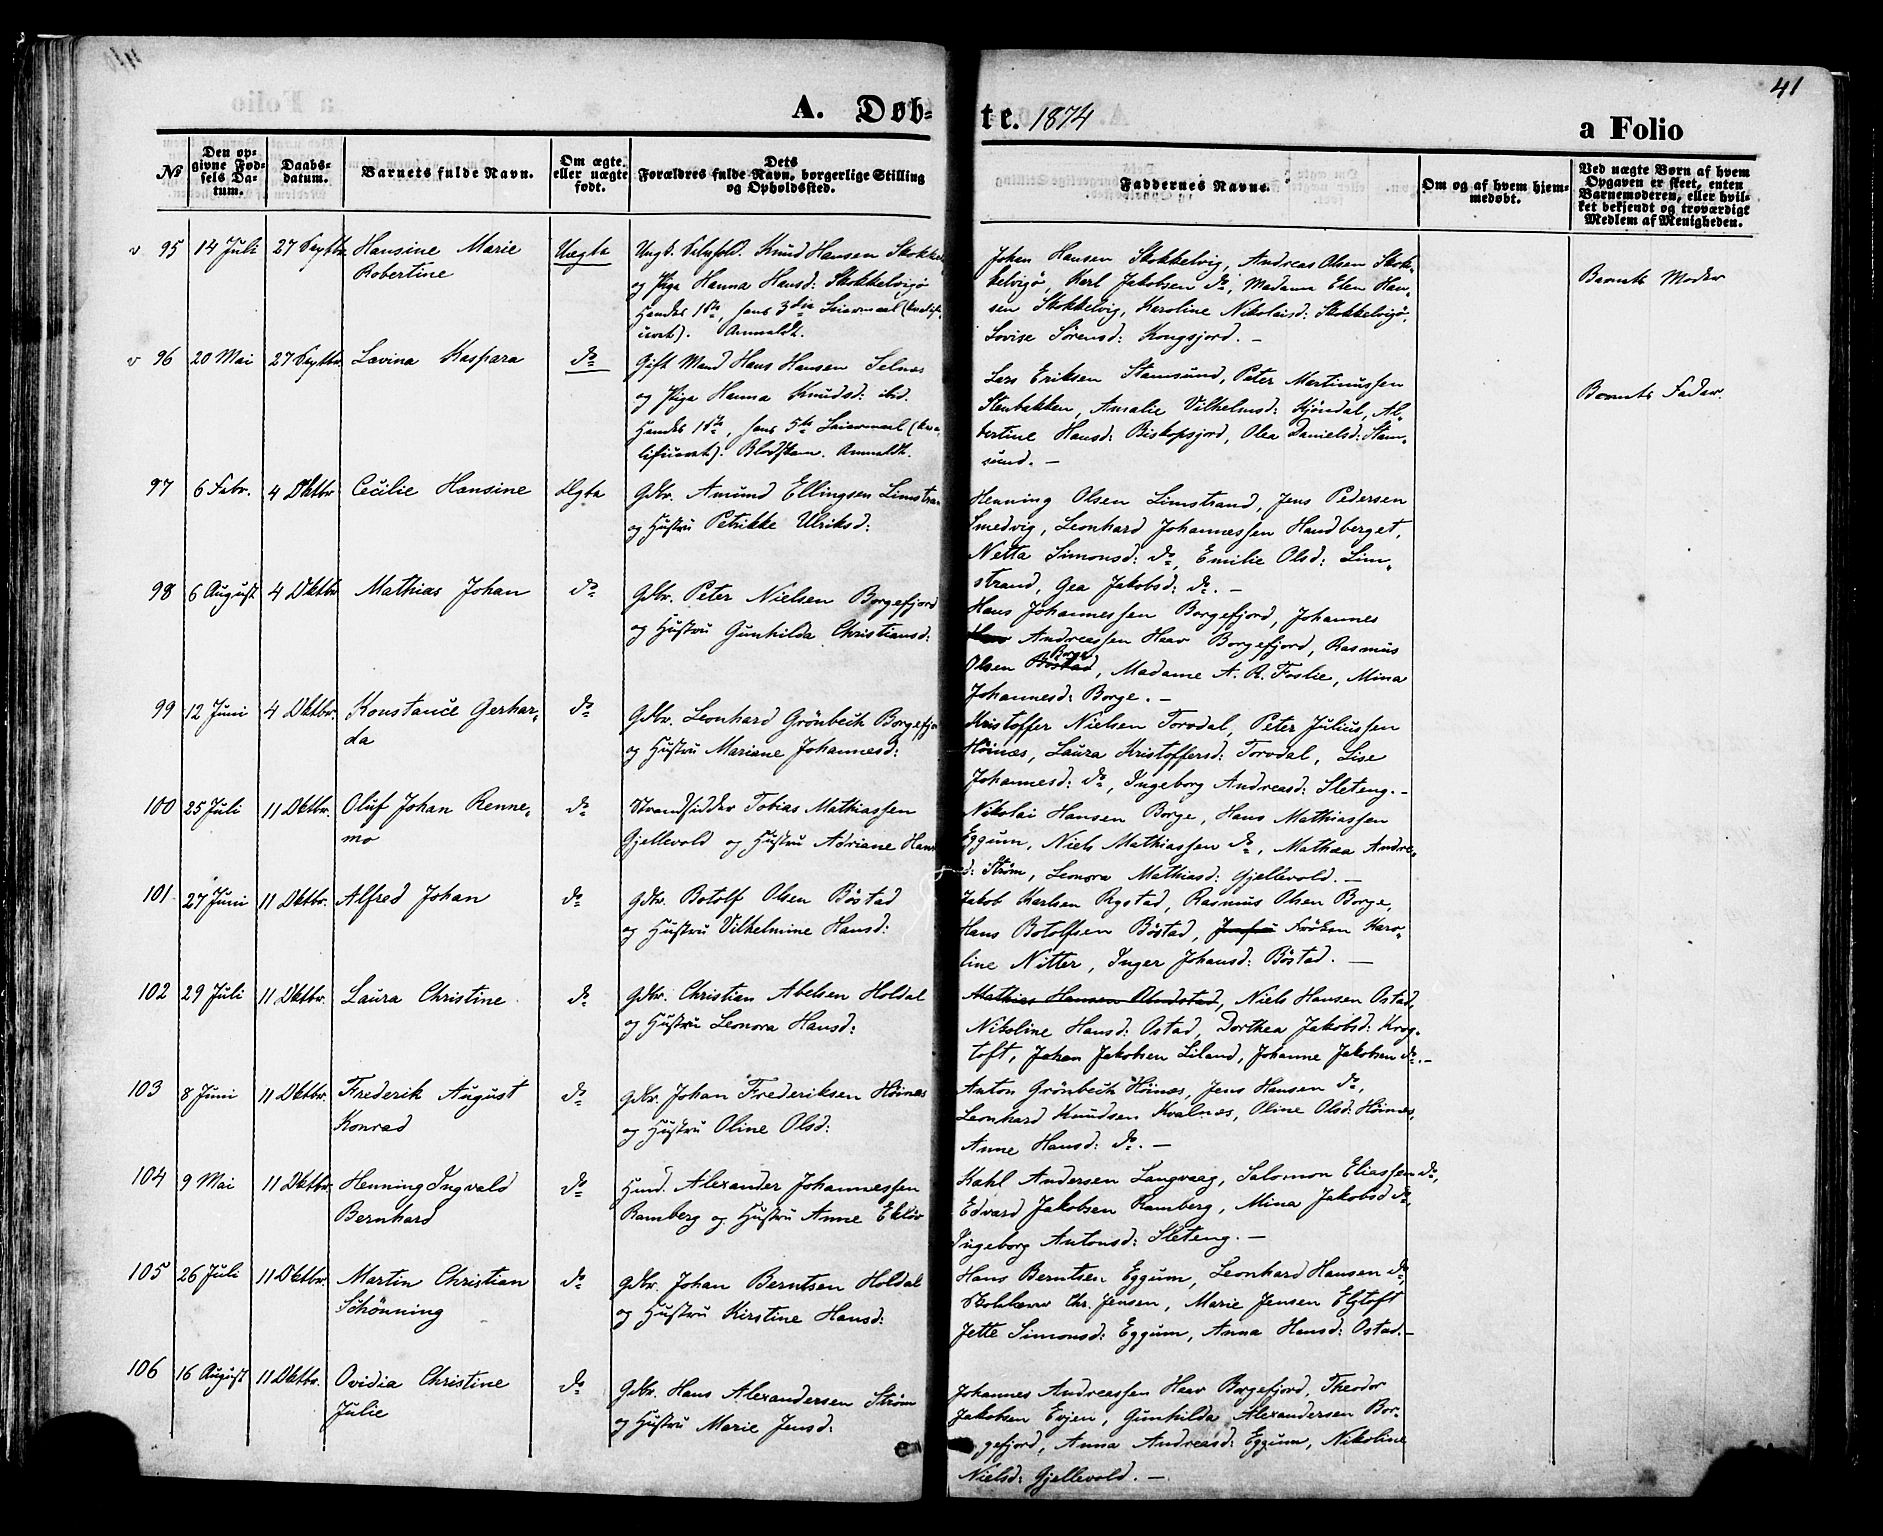 41
A. Døb-
te. 1874
a Folio
No
Den op-
givne Fød-
sels Da-
tum.
Daabs-
datum.
Barnets fulde Navn.
Om ægte
eller uægte
født.
Dets
Forældres fulde Navn, borgerlige Stilling
og Opholdssted.
Faddernes Navne.
Om og af hvem hjem-
medøbt.
Ved uægte Børn af hvem
Opgaven er skeet, enten
Barnemoderen, eller hvil-
ket bekjendt og troværdigt
Medlem af Menigheden.
v 95 14 Juli 27 Septbr. Hansine Marie
Robertine
Uægte
Ungk. Selvfold. Knud Hansen Stokkel
og Pige Hanna Hansd: Stokkelvigø
Hendes 1ste, hans 3die Leiermaal (kvalifi-
ceret). Anmeldt.
Johan Hansen Stokkelvig, Andreas Olsen Stok-
kelvigø, Karl Jakobsen do, Madam Elen Han-
sen Stokkelvig, Karoline Nikolaisd: Stokkelvigø,
Lovise Sørensd: Kongsjord. –
Barnets Moder
v 96 20 Mai 27 Septbr. Lavina Kaspara
do
Gift Mand Hans Hansen Selnes
og Pige Hanna Knudsd: ibd.
Hendes 1ste, hans 5te Leiermaal (kva-
lificeret). Blodskam. Anmeldt.
Lars Eriksen Stamsund, Peter Martinussen
Stenbakken, Amalie Vilhelmsd: Kjøndal, Al-
bertine Hansd: Biskopsjord, Olea Danielsd: Stam-
sund. –
Barnets Fader.
97 6 Febr. 4 Oktbr Cecilie Hansine
Ægte
Gdbr. Amund Ellingsen Limstran
og Hustru Petrikke Ulriksd:
Henning Olsen Limstrand, Jens Pedersen
Smedvig, Leonhard Johannessen Handberget,
Netta Simonsd: do, Emilie Olsd: Lim-
strand, Gea Jakobsd: do. –
98 6 August 4 Oktbr Mathias Johan
do
Gdbr. Peter Nielsen Borgefjord
og Hustru Gunhilda Christiansd:
Hans Johannessen Borgefjord, Johannes
Andreassen Haav Borgefjord, Rasmus
Olsen Bøstad Borge, Madame A. R. Foslie, Mina
Johannesd: Borge. –
99 12 Juni 4 Oktbr. Konstance Gerhar-
da
do
Gdbr. Leonhard Grönbech Borgefjo
og Hustru Mariane Johannesd:
Kristoffer Nielsen Torvdal, Peter Juliussen
Höinæs, Laura Kristoffersd: Torvdal, Lise
Johannesd: do, Ingeborg Andreasd: Sleteng. –
100 25 Juli 11 Oktbr. Oluf Johan Renne-
mo
do
Strandsidder Tobias Mathiassen
Gjellevold og Hustru Adriane Hans
Nikolai Hansen Borge, Hans Mathiassen
Eggum, Niels Mathiassen do, Mathea Andre-
d: Strøm, Leonora Mathiasd: Gjellevold. –
101 27 Juni 11 Oktbr. Alfred Johan
do
Gdbr. Botolf Olsen Böstad
og Hustru Vilhelmine Hansd:
Jakob Karlsen Rystad, Rasmus Olsen Borge,
Hans Botolfsen Böstad, Jomfru Frøken Karo-
line Nitter, Inger Johansd: Böstad. –
102 29 Juli 11 Oktbr. Laura Christine
do
Gdbr. Christian Abelsen Holdal
og Hustru Leonora Hansd:
Mathias Hansen Almstad, Niels Hansen Ostad,
Nikoline Hansd: Ostad, Dorthea Jakobsd: Krog-
toft, Johan Jakobsen Liland, Johanne Jakobsen do. –
103 8 Juni 11 Oktbr. Frederik August
Konrad
do
Gdbr. Johan Frederiksen Höinæs
og Hustru Oline Olsd:
Anton Grönbech Höinæs, Jens Hansen do,
Leonhard Knudsen Kvalnæs, Oline Olsd: Höinæs,
Anne Hansd: do. –
104 9 Mai 11 Oktbr. Henning Ingvald
Bernhard
do
Husm. Alexander Johannessen
Ramberg og Hustru Anne Eklöv
Kahl Andersen Langvaag, Salomon Eliassen do,
Edvard Jakobsen Ramberg, Mina Jakobsd do,
Ingeborg Antonsd: Sleteng. –
105 26 Juli 11 Oktbr. Martin Christian
Schönning
do
Gdbr. Johan Berntsen Holdal
og Hustru Kirstine Hansd:
Hans Berntsen Eggum, Leonhard Hansen do,
Skolelærer Chr. Jensen, Marie Jensen Elgtoft
Jette Simonsd: Eggum, Anna Hansd: Ostad. –
106 16 August 11 Oktbr. Ovidia Christine
Julie
do
Gdbr. Hans Alexandersen Strøm
og Hustru Marie Jensd:
Johannes Andreassen Haav Borgefjord, Theodor
Jakobsen Evjen, Gunhilda Alexandersen Bor-
gefjord, Anna Andreasd: Eggum, Nikoline
Nielsd: Gjellevold. –